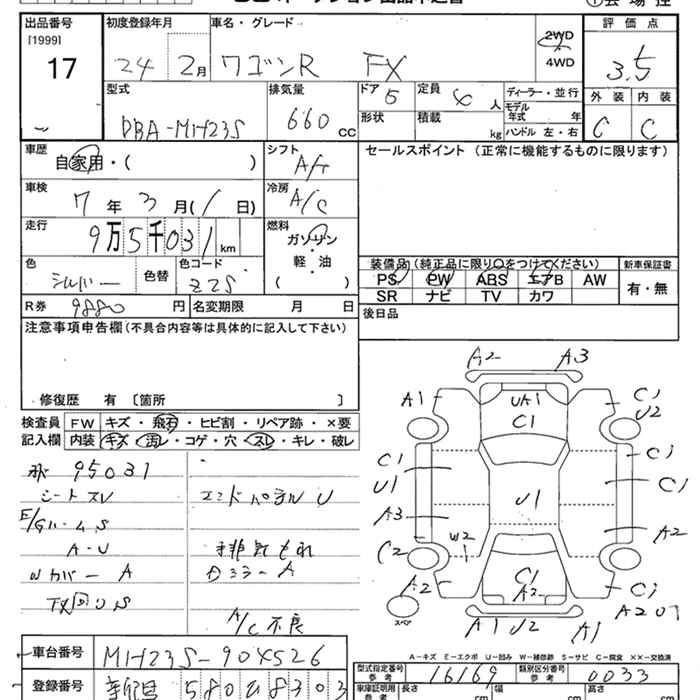 出品番号 初度登録年月 車名・グレード 評価点
[1999]
17 24 2月 ワゴンR FX 2WD 3.5
4WD
型式 排気量 ドア 5 定員 4 人 ディーラー・並行 外装 内装
DBA-MH23S 660 cc 形状 積載 kg モデル年式 年 C C
ハンドル 左・右
車歴 自家用・( ) シフト A/T セールスポイント (正常に機能するものに限ります)
車検 7年 3月( / 日) 冷房 A/C
走行 9万5千031 km 燃料 ガソリン
軽・油
( )
色 シルバー 色替 色コード Z2S 装備品(純正品に限り○をつけてください) 新車保証書
PS PW ABS エアB AW 有・無
SR ナビ TV カワ
R券 9880 円 名変期限 月 日 後日品
注意事項申告欄(不具合内容等は具体的に記入して下さい)
修復歴 有 〔箇所 〕
検査員 FW キズ・飛石・ヒビ割・リペア跡・×要
記入欄 内装 キズ・汚レ・コゲ・穴・スレ・キレ・破レ
95031
シートスレ エンドパネル U
E/Gルーム S
A・U 排気もれ
Wカバー A Dミラー A
下回り S
A/C不良
A2 A3
A1 UA1 C1 U2
C1
C1 U1 C1 C1
U1
A3 A2
W2
C2 C1 C1
A2 A2
スペア
A1 U2 A1
A-キズ E-エクボ U-凹み W-補修跡 S-サビ C-腐食 XX-交換済
車台番号 MH23S-904526 型式指定番号 参考 16169 類別区分番号 参考 0033
登録番号 580 8303 車庫証明用 参考 長さ cm 幅 cm 高さ cm